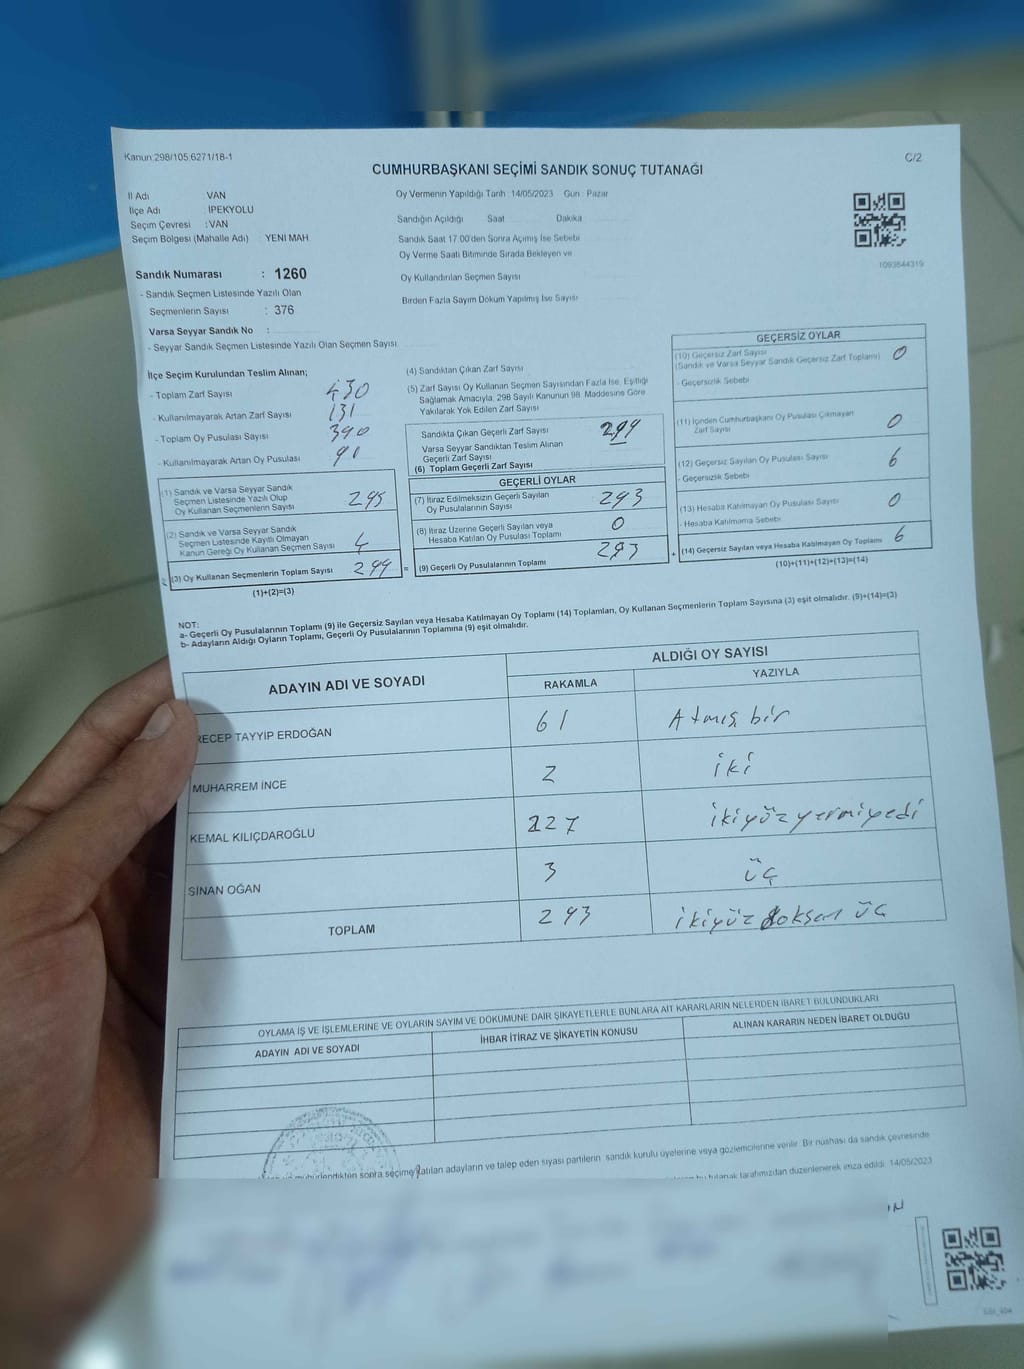 Kanun:298/105,6271/18-1
C/2
CUMHURBAŞKANI SEÇİMİ SANDIK SONUÇ TUTANAĞI
İl Adı VAN
İlçe Adı : İPEKYOLU
Seçim Çevresi : VAN
Seçim Bölgesi (Mahalle Adı) YENİ MAH.
Sandık Numarası : 1260
- Sandık Seçmen Listesinde Yazılı Olan
Seçmenlerin Sayısı : 376
Varsa Seyyar Sandık No :
- Seyyar Sandık Seçmen Listesinde Yazılı Olan Seçmen Sayısı
Oy Vermenin Yapıldığı Tarih 14/05/2023 Gün : Pazar
Sandığın Açıldığı Saat Dakika
Sandık Saat 17.00'den Sonra Açımış İse Sebebi
Oy Verme Saati Bitiminde Sırada Bekleyen ve
Oy Kullandırılan Seçmen Sayısı
Birden Fazla Sayım Döküm Yapılmış İse Sayısı
1093844319
İlçe Seçim Kurulundan Teslim Alınan;
- Toplam Zarf Sayısı 430
- Kullanılmayarak Artan Zarf Sayısı 131
- Toplam Oy Pusulası Sayısı 390
- Kullanılmayarak Artan Oy Pusulası 91
(1) Sandık ve Varsa Seyyar Sandık
Seçmen Listesinde Yazılı Olup
Oy Kullanan Seçmenlerin Sayısı 295
(2) Sandık ve Varsa Seyyar Sandık
Seçmen Listesinde Kayıtlı Olmayan
Kanun Gereği Oy Kullanan Seçmen Sayısı 4
(3) Oy Kullanan Seçmenlerin Toplam Sayısı 299 =
(1)+(2)=(3)
(4) Sandıktan Çıkan Zarf Sayısı
(5) Zarf Sayısı Oy Kullanan Seçmen Sayısından Fazla İse, Eşitliği
Sağlamak Amacıyla, 298 Sayılı Kanunun 98. Maddesine Göre
Yakılarak Yok Edilen Zarf Sayısı
Sandıkta Çıkan Geçerli Zarf Sayısı 299
Varsa Seyyar Sandıktan Teslim Alınan
Geçerli Zarf Sayısı
(6) Toplam Geçerli Zarf Sayısı
GEÇERLİ OYLAR
(7) İtiraz Edilmeksizin Geçerli Sayılan
Oy Pusulalarının Sayısı 293
(8) İtiraz Üzerine Geçerli Sayılan veya
Hesaba Katılan Oy Pusulası Toplamı 0
(9) Geçerli Oy Pusulalarının Toplamı 293 +
GEÇERSİZ OYLAR
(10) Geçersiz Zarf Sayısı
(Sandık ve Varsa Seyyar Sandık Geçersiz Zarf Toplamı) 0
- Geçersizlik Sebebi
(11) İçinden Cumhurbaşkanı Oy Pusulası Çıkmayan
Zarf Sayısı 0
(12) Geçersiz Sayılan Oy Pusulası Sayısı 6
- Geçersizlik Sebebi
(13) Hesaba Katılmayan Oy Pusulası Sayısı 0
- Hesaba Katılmama Sebebi
(14) Geçersiz Sayılan veya Hesaba Katılmayan Oy Toplamı 6
(10)+(11)+(12)+(13)=(14)
NOT:
a- Geçerli Oy Pusulalarının Toplamı (9) ile Geçersiz Sayılan veya Hesaba Katılmayan Oy Toplamı (14) Toplamları, Oy Kullanan Seçmenlerin Toplam Sayısına (3) eşit olmalıdır. (9)+(14)=(3)
b- Adayların Aldığı Oyların Toplamı, Geçerli Oy Pusulalarının Toplamına (9) eşit olmalıdır.
ADAYIN ADI VE SOYADI ALDIĞI OY SAYISI
RAKAMLA YAZIYLA
RECEP TAYYİP ERDOĞAN 61 Atmış bir
MUHARREM İNCE 2 iki
KEMAL KILIÇDAROĞLU 227 ikiyüz yermiyedi
SİNAN OĞAN 3 üç
TOPLAM 293 ikiyüz doksan üç
OYLAMA İŞ VE İŞLEMLERİNE VE OYLARIN SAYIM VE DÖKÜMÜNE DAİR ŞİKAYETLERLE BUNLARA AİT KARARLARIN NELERDEN İBARET BULUNDUKLARI
ADAYIN ADI VE SOYADI İHBAR İTİRAZ VE ŞİKAYETİN KONUSU ALINAN KARARIN NEDEN İBARET OLDUĞU
mühürlendikten sonra seçime katılan adayların ve talep eden siyasi partilerin sandık kurulu üyelerine veya gözlemcilerine verilir. Bir nüshası da sandık çevresinde
bu tutanak tarafımızdan düzenlenerek imza edildi. 14/05/2023